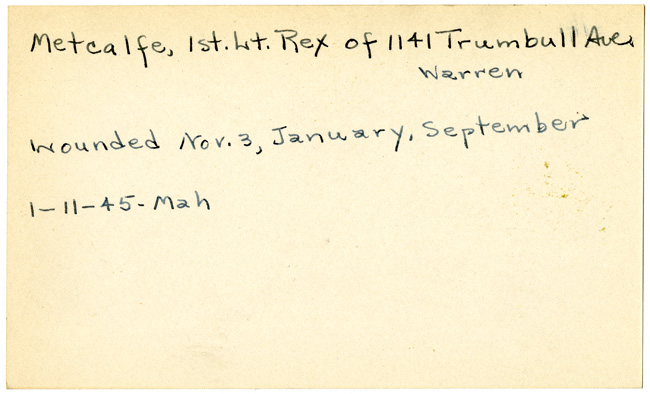 Metcalfe, 1st. Lt. Rex of 1141 Trumbull Ave.
Warren
Wounded Nov. 3, January, September
1-11-45-Mah